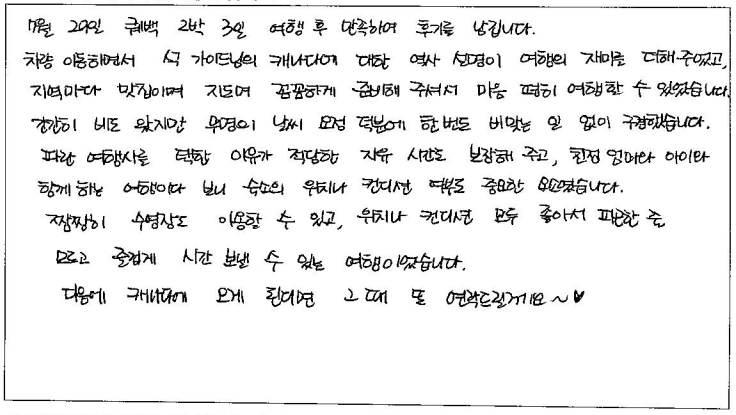 7월 29일 퀘백 2박 3일 여행 후 만족하여 후기를 남깁니다.
차량 이동하면서 식 가이드님의 캐나다에 대한 역사 설명이 여행의 재미를 더해 주었고,
지역마다 맛집이며 지도며 꼼꼼하게 준비해 주셔서 마음 편히 여행할 수 있었습니다.
간간히 비도 왔지만 우영이 날씨 요정 덕분에 한번도 비맞는 일 없이 구경했습니다.
파란 여행사를 택한 이유가 적당한 자유 시간도 보장해 주고, 친정 엄마와 아이와
함께 하는 여행이다 보니 숙소의 위치나 컨디션 여부도 중요한 요소였습니다.
짬짬히 수영장도 이용할 수 있고, 위치나 컨디션 모두 좋아서 피곤한 줄
모르고 즐겁게 시간 보낼 수 있는 여행이었습니다.
다음에 캐나다에 오게 된다면 그 때 또 연락드릴게요~♥